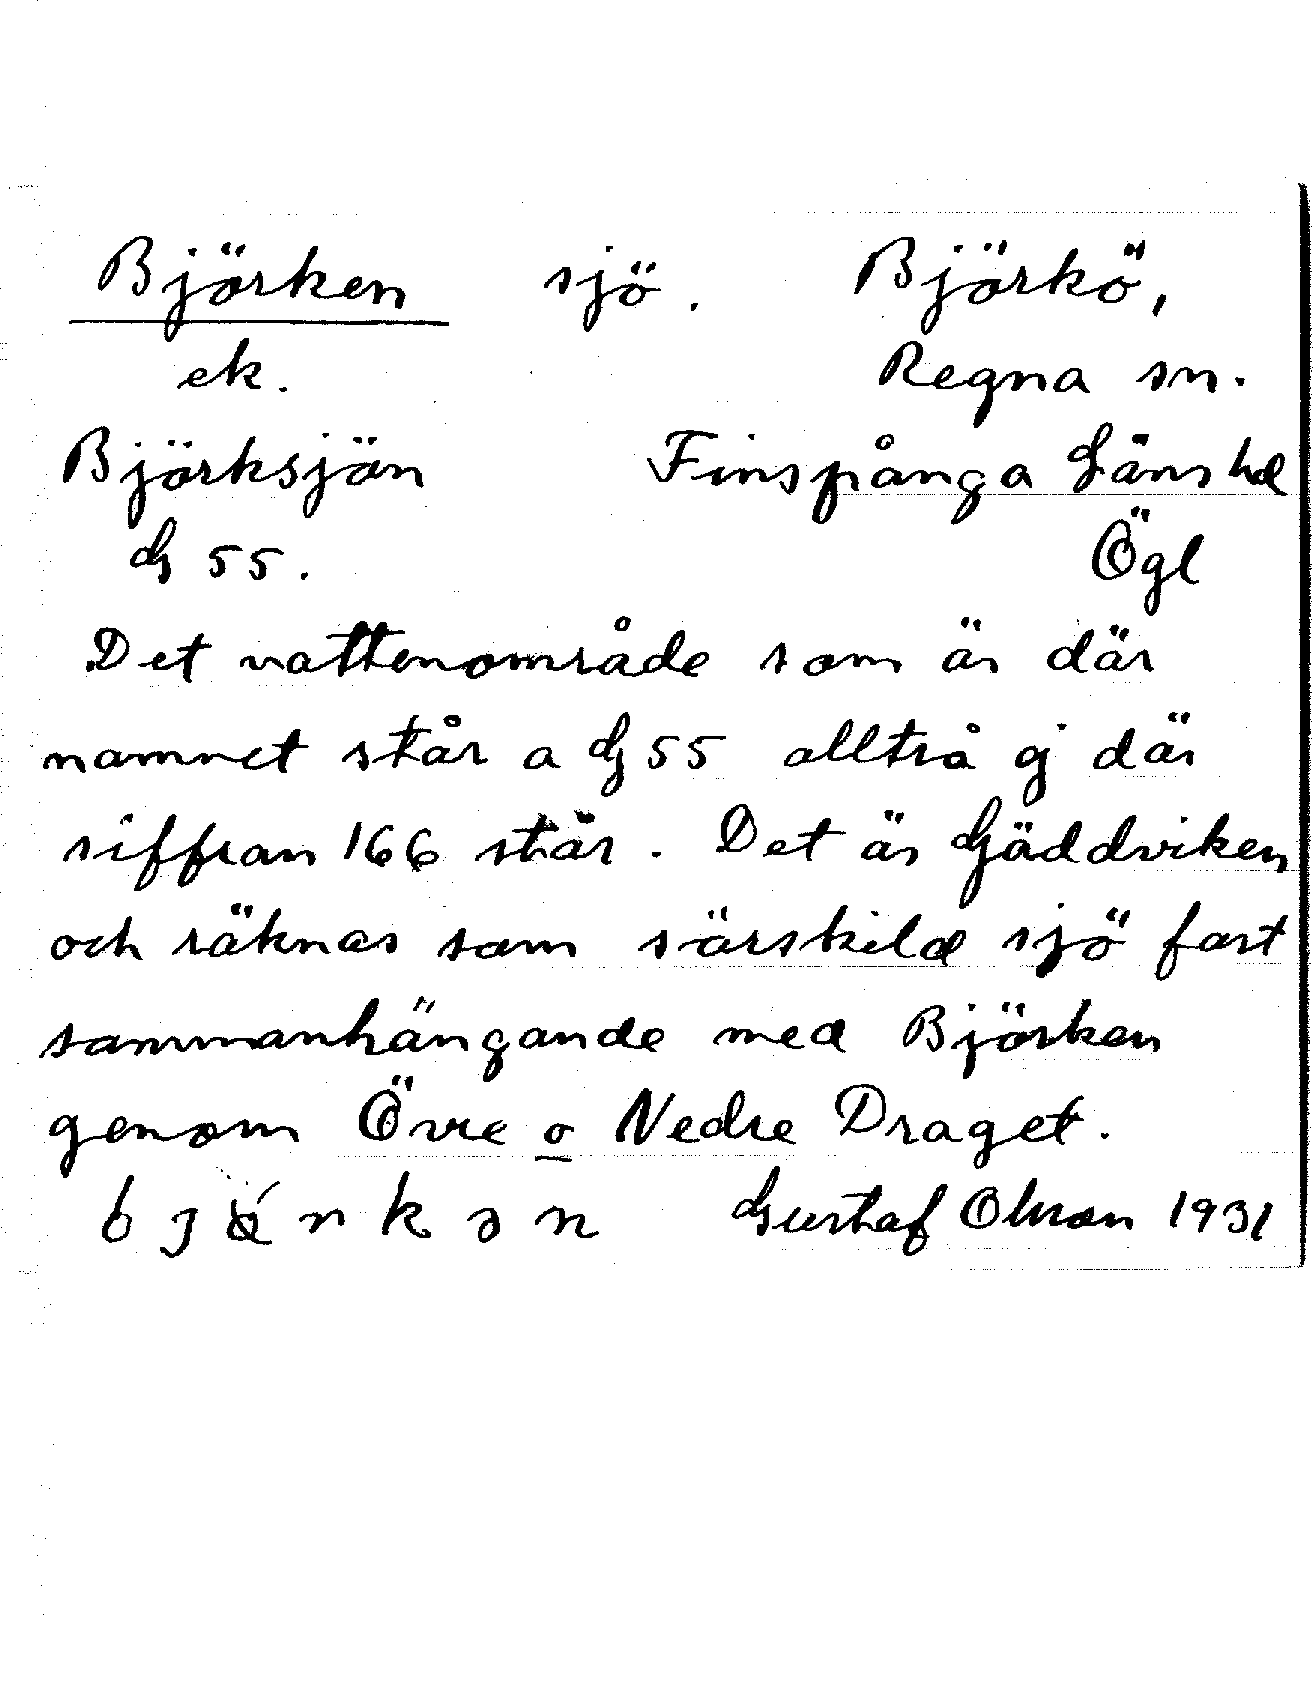 Björken sjö. Björkö,
ek. Regna sn.
Björksjön Finspånga Läns hd
G 55. Ögl
Det vattenområde som är där
namnet står a G 55 alltså ej där
siffran 166 står. Det är Gäddviken
och räknas som särskild sjö fast
sammanhängande med Björken
genom Övre o Nedre Draget.
Gustaf Olsson 1931